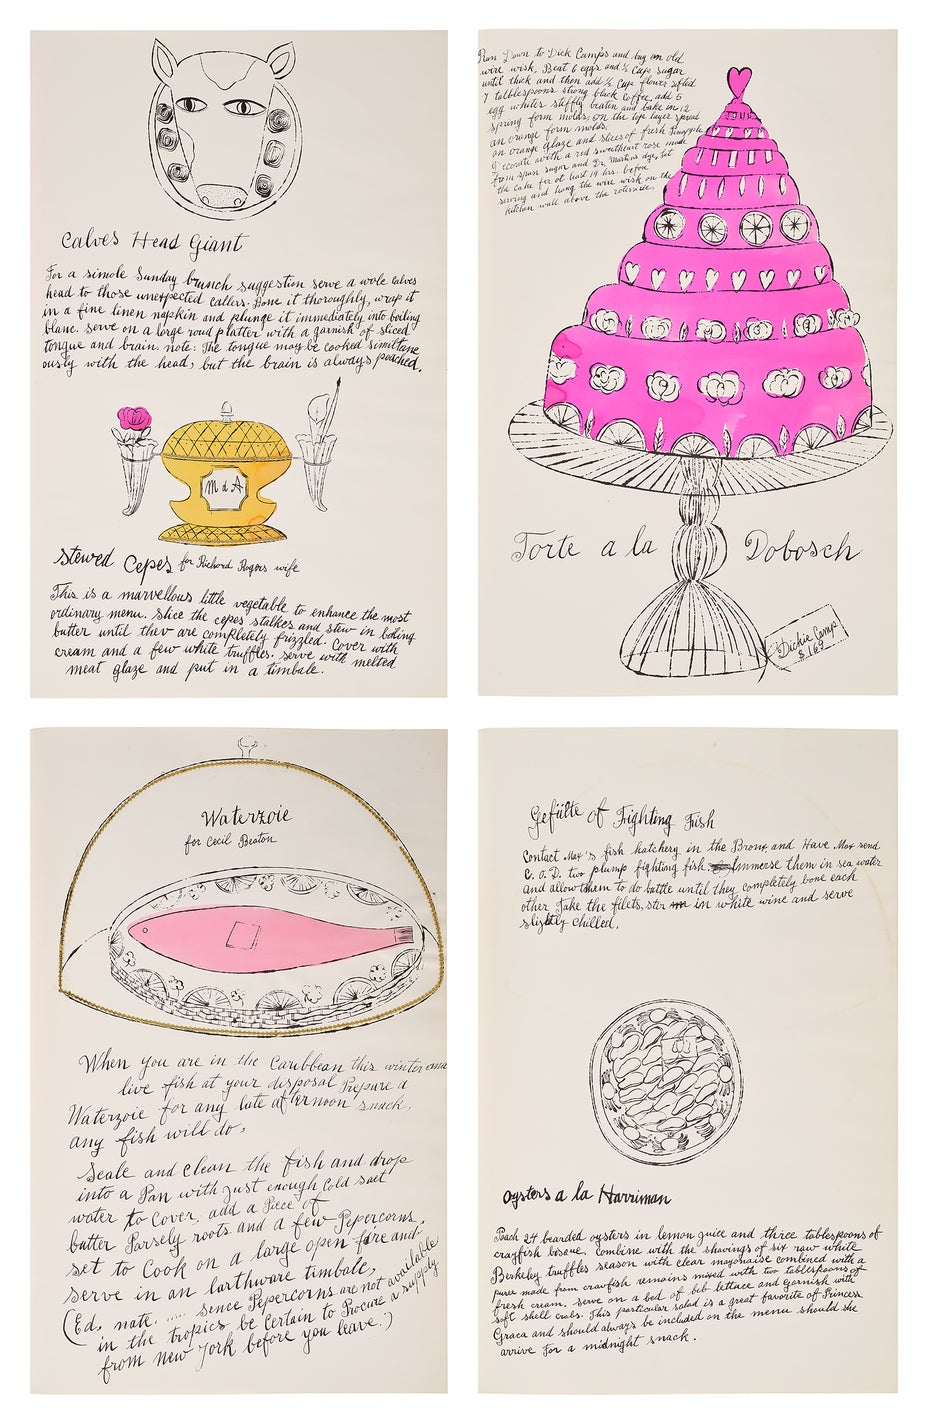 Calves Head Giant
For a simole Sunday brunch suggestion serve a wole calves
head to those unexpected callers. Bone it thoroughly, wrap it
in a fine linen napkin and plunge it immediately into boiling
blanc. serve on a large roud platter with a garnish of sliced
tongue and brain. note: The tongue may be cooked simultane
ously with the head, but the brain is always poached.
M d A
Stewed Cepes for Richard Rogers wife
This is a marvellous little vegetable to enhance the most
ordinary menu. Slice the cepes stalkes and stew in boiling
butter until thev are completely frizzled. Cover with
cream and a few white truffles. serve with melted
meat glaze and put in a timbale.
Run Down to Dick Camps and buy an old
wire wisk, Beat 6 eggs and ½ Cup sugar
until thick and then add ½ Cup flower sifted
7 talblespoons strong black Coffee, add 5
egg whites stiffly beaten and bake in 12
spring form molds, on the top layer spread
an orange form molds.
an orange glaze and slices of fresh Pineapple
Decorate with a red sweetheart rose made
from spun sugar and Dr. Martins dye, let
the cake fer at least 14 hrs. before
serving and hang the wire wisk on the
kitchen wall above the rotissarie.
Torte a la Dobosch
Dickie Camp
$ 1.69
Waterzoie
for Cecil Beaton
When you are in the Caribbean this winter and
live fish at your disposal Prepare a
Waterzoie for any late afternoon snack,
any fish will do,
Scale and clean the fish and drop
into a Pan with just enough Cold salt
water to Cover, add a Piece of
butter Parsely roots and a few Pepercorns,
set to Cook on a large open fire and
serve in an earthware timbale,
(Ed. note. ..... since Pepercorns are not available
in the tropics be Certain to Procure a supply
from New York before you leave.)
Gefülte of Fighting Fish
Contact Max's fish hatchery in the Bronx and Have Max send
C. O. D. two plump fighting fish. Immerse them in sea water
and allow them to do battle until they completely bone each
other Take the filets, ster in white wine and serve
slightly chilled.
Oysters a la Harriman
Poach 24 bearded oysters in lemon juice and three tablespoons of
crayfish bosque. combine with the shavings of six raw white
Berkeley truffles season with clear mayonaise combined with a
puree made from crawfish remains mixed with two tablespoons of
fresh cream. serve on a bed of bib lettuce and garnish with
soft shell crabs. This particular salad is a great favorite of Princess
Graca and should always be included on the menu should she
arrive for a midnight snack.